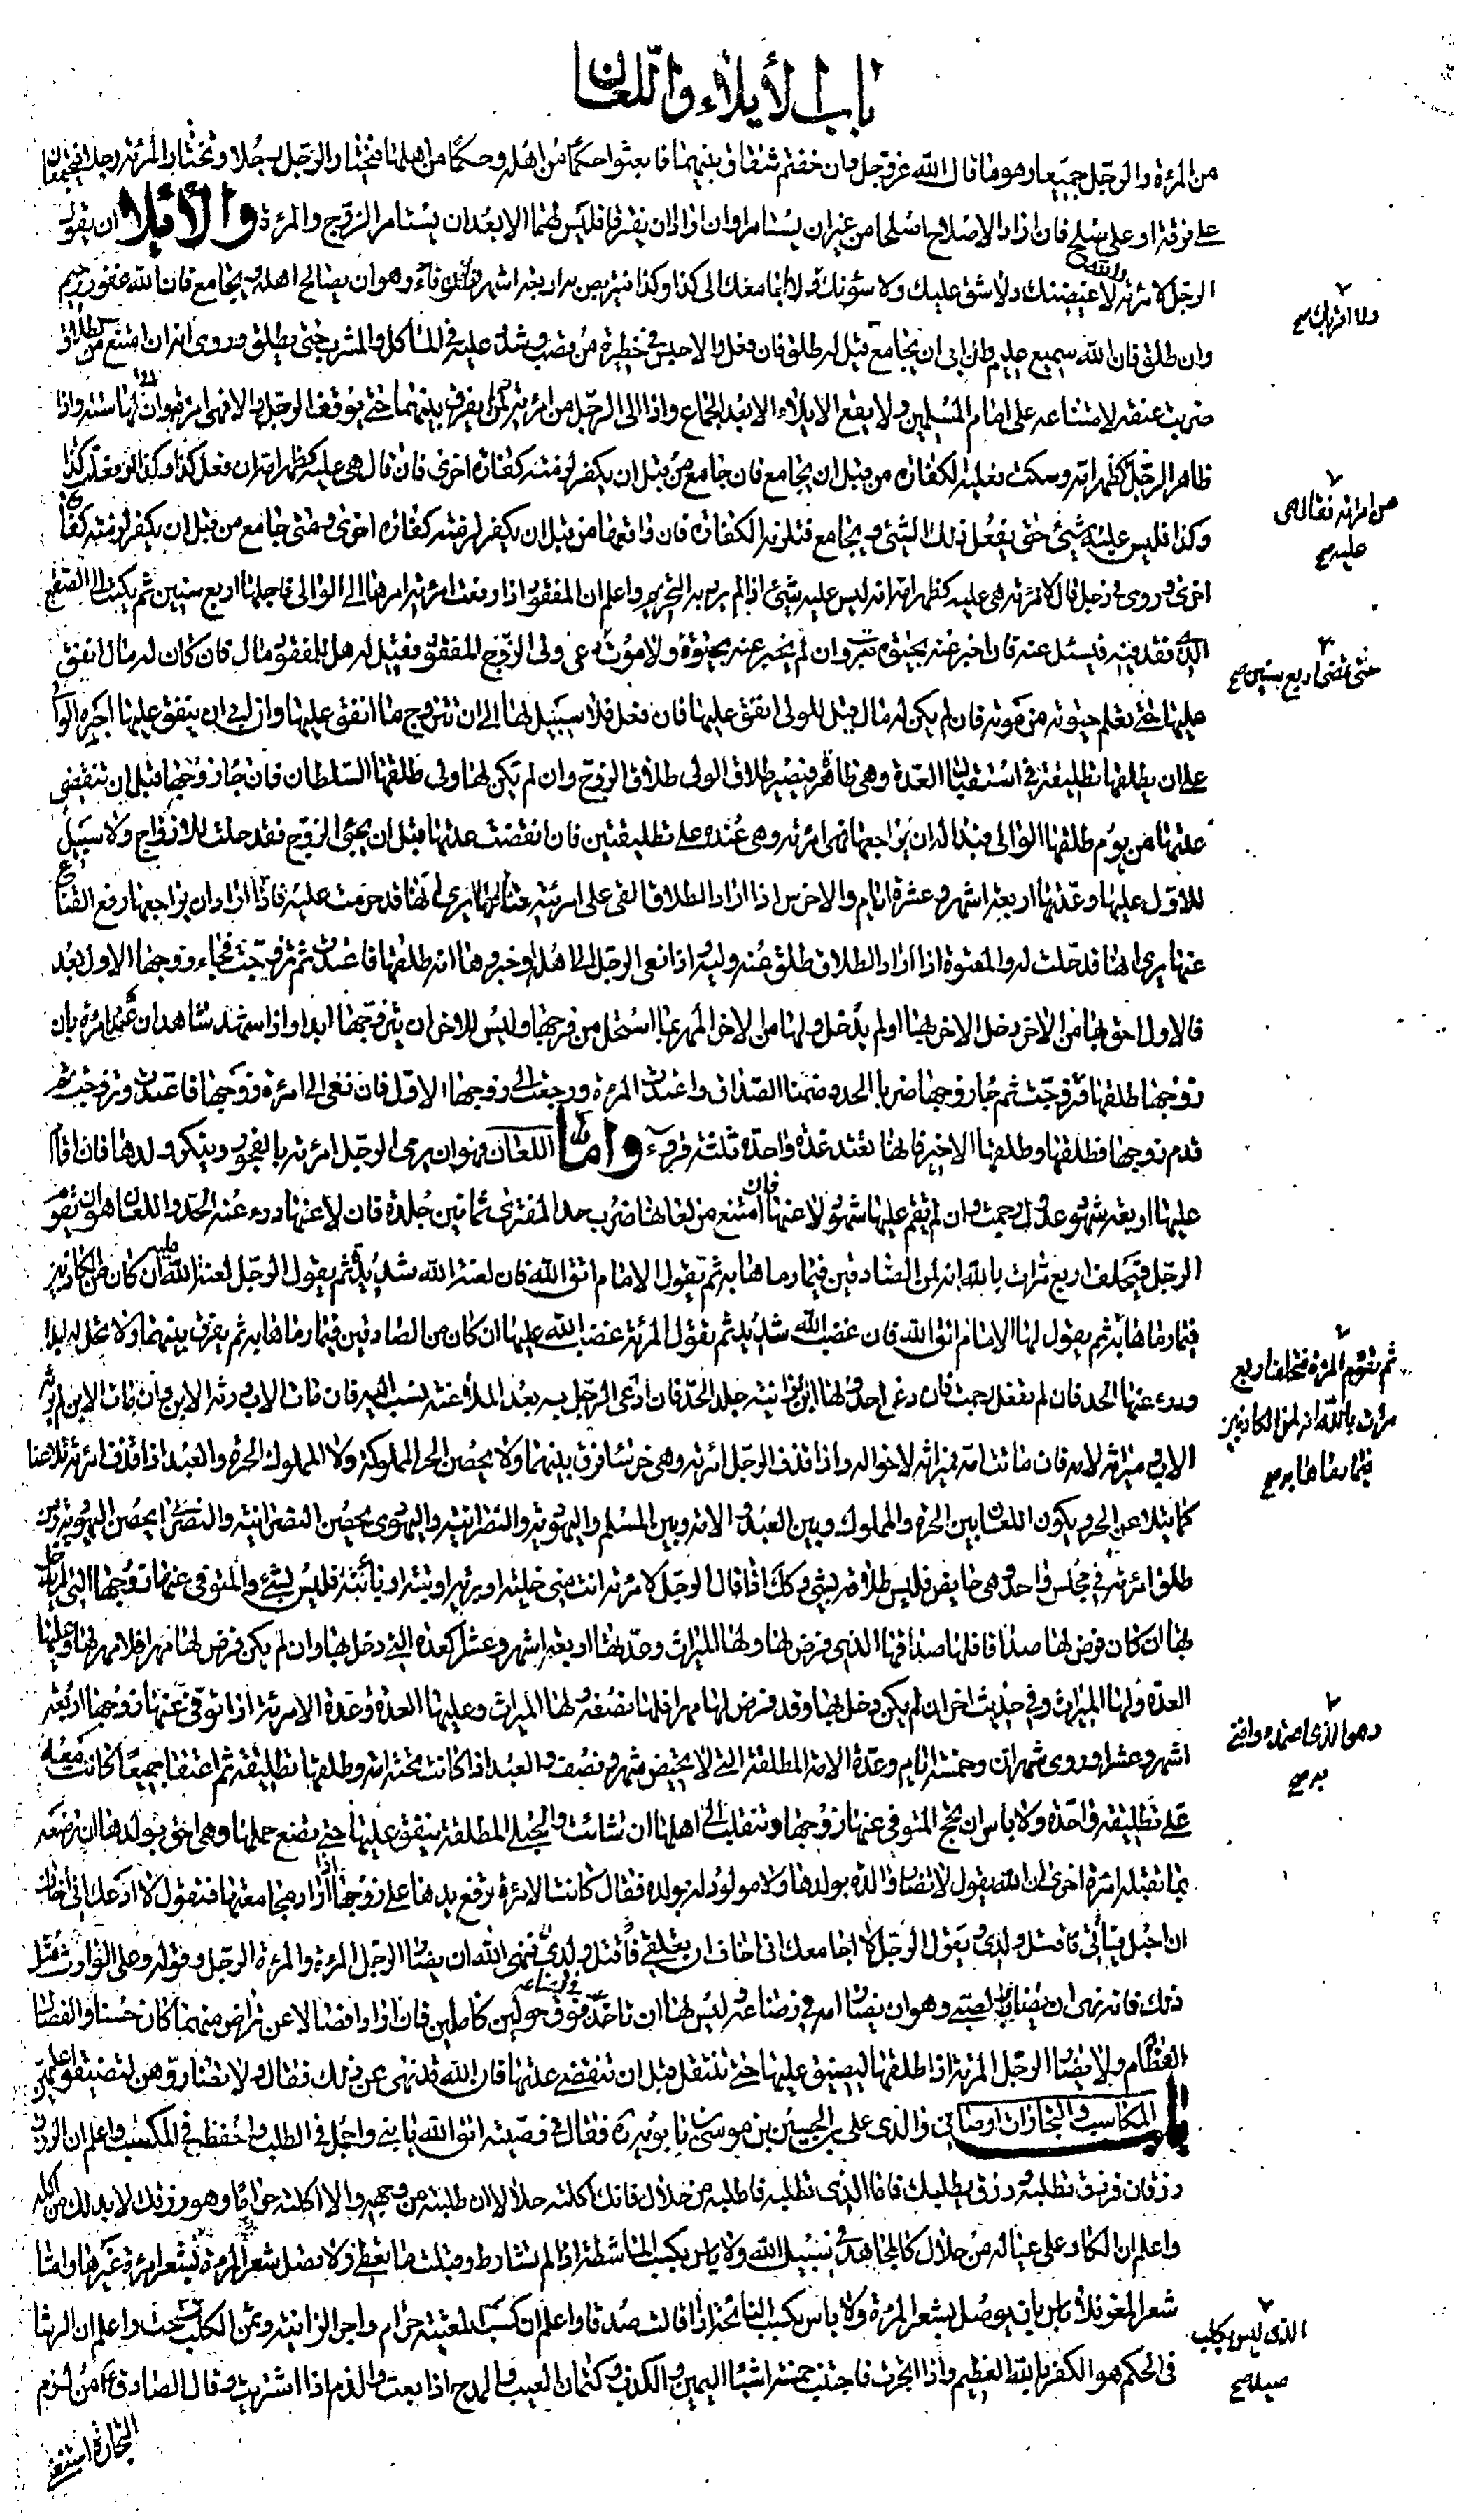 باب الأيلاء واللعان
من المرئة والرجل جميعا وهو ما قال الله عز وجل وان خفتم شقاق بينهما فابعثوا حكما من اهله وحكما من اهلها فيختار الرجل رجلا وتختار المرئة رجلا فيجتمعان
على فرقة او على صلح فان ارادا الاصلاح اصلحا من غير ان يستامرا وان ارادا ان يفترقا فليس لهما الا بعد ان يستامرا الزوج والمرئة والأيلا ان يقول
الرجل لامرئته والله لاغيضنك ولاشق عليك ولاسؤنك ولا اجامعك الى كذا وكذا فيتربص به اربعة اشهر فان فاء وهو ان يصالح اهله ويجامع فان الله غفور رحيم
وان طلق فان الله سميع عليم وان ابى ان يجامع قيل له طلق فان فعل والا حبس في حظيرة من قصب وشدد عليه في الماكل والمشرب حتى يطلق وروى انه ان امتنع من الطلاق
ضربت عنقه لامتناعه على امام المسلمين ولا يقع الايلاء الا بعد الجماع واذا الى الرجل من امرئته لم يفرق بينهما حتى يوقف الرجل والا فهى امرئته وان لها سنة واذا
ظاهر الرجل كظهر امه وسكت فعليه الكفارة من قبل ان يجامع فان جامع من قبل ان يكفر لزمته كفارة اخرى فان قال هى عليه كظهر امه ان فعل كذا وكذا او فعلت كذا
وكذا فليس عليه شيئ حتى يفعل ذلك الشئ ويجامع فتلزمه الكفارة فان واقعها من قبل ان يكفر لزمته كفارة اخرى ومتى جامع من قبل ان يكفر لزمته كفارة
اخرى وروى في رجل قال لامرئته هى عليه كظهر امه انه ليس عليه شيئ اذا لم يرد به التحريم واعلم ان المفقود اذا رفعت امرئته امرها الى الوالى فاجلها اربع سنين ثم يكتب الى الصقع
الذى فقد فيه فيسئل عنه فان اخبر عنه بحيوة صبرت وان لم يخبر عنه بحيوة ولا موت دعى ولى الزوج المفقود فقيل له هل للمفقود مال فان كان له مال انفق
عليها حتى تعلم حيوته من موته فان لم يكن له مال قيل للولى انفق عليها فان فعل فلا سبيل لها الى ان تتزوج ما انفق عليها وان ابى ان ينفق عليها اجبره الوالى
على ان يطلقها تطليقة في استقبال العدة وهى طاهر فيصير طلاق الولى طلاق الزوج وان لم يكن لها ولى طلقها السلطان فان جاء زوجها قبل ان تنقضى
عدتها من يوم طلقها الوالى فبدا له ان يراجعها فهى امرئته وهى عنده على تطليقتين فان انقضت عدتها قبل ان يجيئ الزوج فقد حلت للازواج ولا سبيل
للاول عليها وعدتها اربعة اشهر وعشرة ايام والاخرس اذا اراد الطلاق القى على امرئته قناعها يرى انها قد حرمت عليه فاذا اراد ان يراجعها رفع القناع
عنها يرى انها قد حلت له والمعتوه اذا اراد الطلاق طلق عنه وليه اذا نعى الرجل الى اهله وخبروها انه طلقها فاعتدت ثم تزوجت فجاء زوجها الاول بعد
فالاول احق بها من الاخر دخل الاخر بها او لم يدخل ولها من الاخر المهر بما استحل من فرجها وليس للاخر ان يتزوجها ابدا واذا شهد شاهدان عند امرئة بان
زوجها طلقها فتزوجت ثم جاء زوجها ضربا الحد وضمنا الصداق واعتدت المرئة ورجعت الى زوجها الاول فان نعى الى امرئة زوجها فاعتدت وتزوجت ثم
قدم زوجها فطلقها وطلقها الاخير فانها تعتد عدة واحدة ثلثة قروء واما اللعان فهو ان يرمى الرجل امرئته بالفجور وينكر ولدها فان اقام
عليها اربعة شهود عدول رجمت وان لم يقم عليها شهود لاعنها فان امتنع من لعانها ضرب حد المفترى ثمانين جلدة فان لاعنها درء عنه الحد واللعان هو ان يقوم
الرجل فيحلف اربع مرات بالله انه لمن الصادقين فيما رماها به ثم يقول الامام اتق الله فان لعنة الله شديدة ثم يقول الرجل لعنة الله عليه ان كان من الكاذبين
فيما رماها به ثم يقول لها الامام اتق الله فان غضب الله شديد ثم تقول المرئة غضب الله عليها ان كان من الصادقين فيما رماها به ثم يفرق بينهما ولا تحل له ابدا
ودرء عنها الحد فان لم تفعل رجمت فان دعى احد ولدها ابن زانية جلد الحد فان ادعى الرجل به بعد الملاعنة نسب اليه فان مات الاب ورثه الابن وان مات الابن لم يرثه
الاب وميراثه لامه فان ماتت امه فميراثه لاخواله واذا قذف الرجل امرئته وهى خرساء فرق بينهما ولا يحصن الحر المملوكة ولا المملوك الحرة والعبد اذا قذف امرئته تلاعنا
كما يتلاعن الحر ويكون اللعان بين الحرة والمملوك وبين العبد والامة وبين المسلم واليهودية والنصرانية واليهودى يحصن النصرانية والنصرانى يحصن اليهودية ومن
طلق امرئته في مجلس واحد وهى حايض فليس طلاقه بشئ وكك اذا قال الرجل لامرئته انت منى خلية او برية او بتة او بائنة فليس بشئ والمتوفى عنها زوجها التى لم يدخل
بها ان كان فرض لها صداقا فلها صداقها الذى فرض لها ولها الميراث وعدتها اربعة اشهر وعشرا كعدة التى دخل بها وان لم يكن فرض لها مهرا فلا مهر لها وعليها
العدة ولها الميراث وفي حديث اخر ان لم يكن دخل بها وقد فرض لها مهرا فلها نصفه ولها الميراث وعليها العدة وعدة الامرئة اذا توفى عنها زوجها اربعة
اشهر وعشرا وروى شهران وخمسة ايام وعدة الامة المطلقة التى لا تحيض شهر ونصف والعبد اذا كانت تحته امة وطلقها تطليقة ثم اعتقا جميعا كانت معه
على تطليقة واحدة ولا باس ان تحج المتوفى عنها زوجها وتنتقل الى اهلها ان شائت والحبلى المطلقة ينفق عليها حتى تضع حملها وهى احق بولدها ان ترضعه
بما تقبله امرئة اخرى ان الله يقول لا تضار والدة بولدها ولا مولود له بولده فقال كانت الامرئة ترفع يدها على زوجها اذا اراد مجامعتها فتقول لا ادعك انى اخاف
ان احبل فياتى فاقتل ولدى ويقول الرجل لا اجامعك انى اخاف ان تعلقى فاقتل ولدى فنهى الله ان يضار الرجل المرئة والمرئة الرجل وقوله وعلى الوارث مثل
ذلك فانه نهى ان يضار بالصبى وهو ان يضار امه في رضاعه ليس لها ان تاخذ في رضاعه فوق حولين كاملين فان ارادا فصالا عن تراض منهما كان حسنا والفصال
الفطام ولا يضار الرجل المرئة اذا طلقها ليضيق عليها حتى تنتقل قبل ان تنقضى عدتها فان الله قد نهى عن ذلك فقال ولا تضاروهن لتضيقوا عليهن
باب المكاسب والتجارات اوصانى والدى على بن الحسين بن موسى بن بابويه ره فقال في وصيته اتق الله يا بنى واجمل في الطلب واخفظ في المكسب واعلم ان الرزق
رزقان فرزق تطلبه ورزق يطلبك فاما الذى تطلبه فاطلبه من حلال فانك اكلته حلالا ان طلبته من وجهه والا اكلته حراما وهو رزقك لا بد لك من اكله
واعلم ان الكاد على عياله من حلال كالمجاهد في سبيل الله ولا باس بكسب الماشطة اذا لم تشارط وقبلت ما تعطى ولا تصل شعر المرئة بشعر امرئة غيرها واما
شعر المعز فلا باس بان يوصل بشعر المرئة ولا باس بكسب النائحة اذا قالت صدقا واعلم ان كسب المغنية حرام واجر الزانية وثمن الكلب سحت واعلم ان الرشا
في الحكم هو الكفر بالله العظيم واذا اتجرت فاجتنب خمسة اشياء اليمين والكذب وكتمان العيب والمدح اذا بعت والذم اذا اشتريت وقال الصادق ع من لزم
التجارة استغنى
ولا اقربك صح
من امرئته فقال هى
عليه صح
حتى تمضى اربع سنين صح
ثم تقوم المرئة فتحلف اربع
مرات بالله انه لمن الكاذبين
فيما رماها به صح
وهو الذى اعتمده وافتى
به صح
الذى ليس بكلب
صيد صح